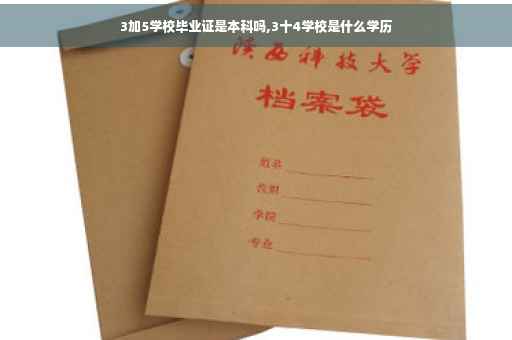 3加5学校毕业证是本科吗,3十4学校是什么学历
陕西科技大学
档案袋
姓名
学院
专业